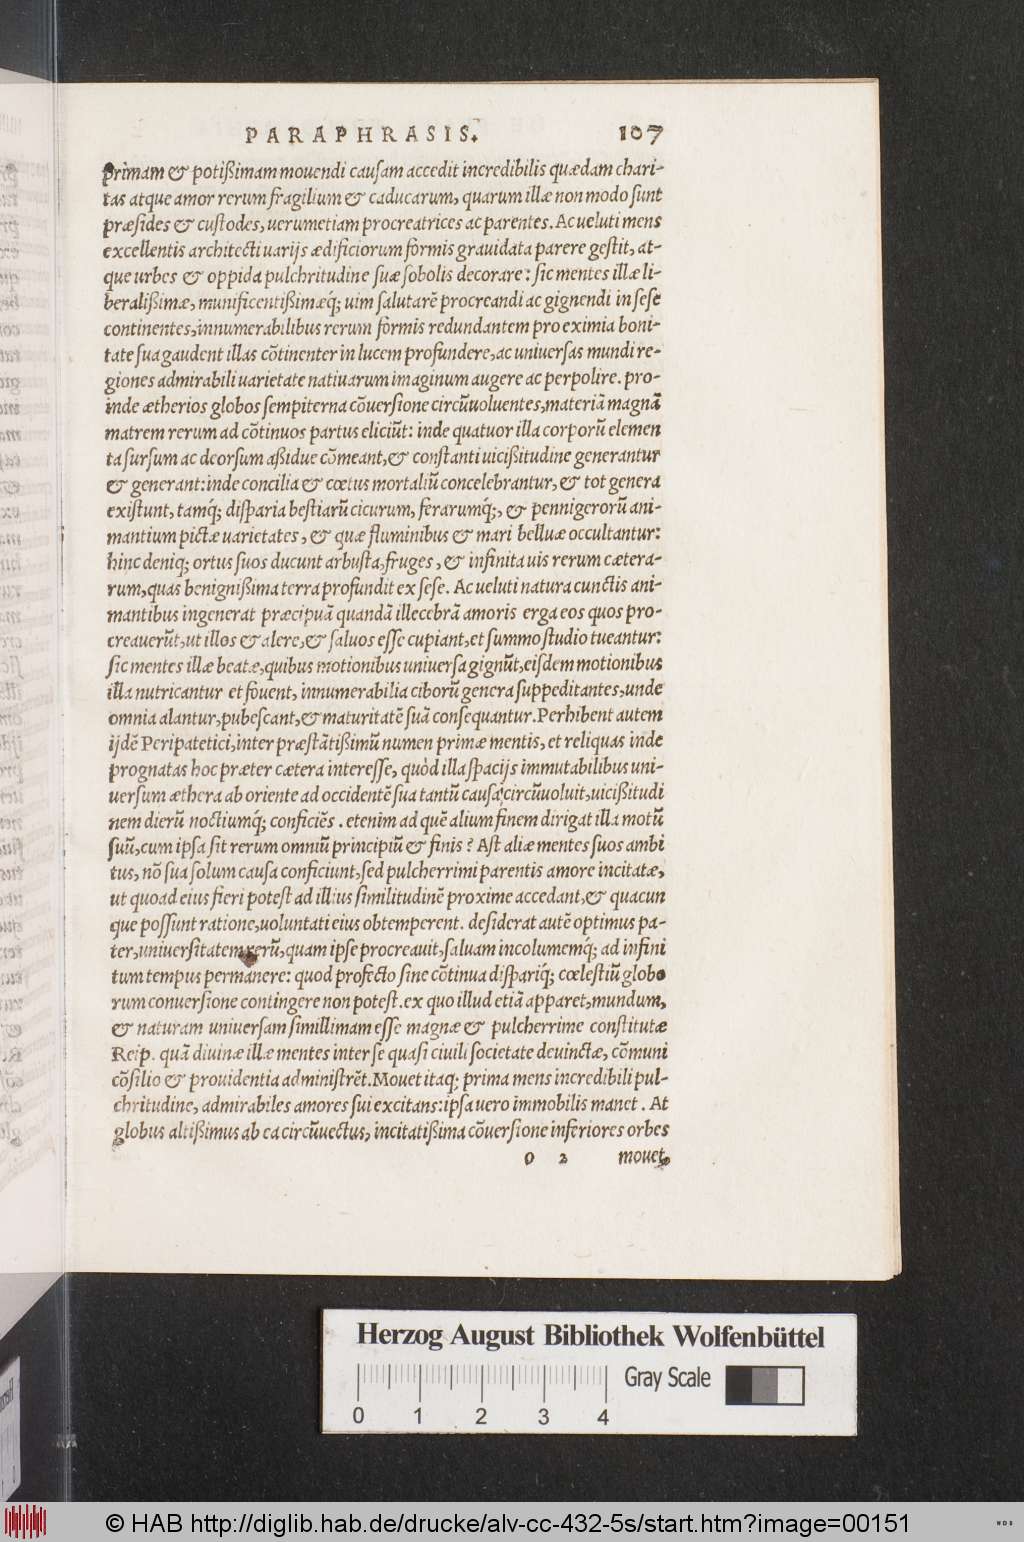 PARAPHRASIS. 107
primam & potißimam mouendi causam accedit incredibilis quædam chari-
tas atque amor rerum fragilium & caducarum, quarum illæ non modo sunt
præsides & custodes, uerumetiam procreatrices ac parentes. Ac ueluti mens
excellentis architecti uarijs ædificiorum formis grauidata parere gestit, at-
que urbes & oppida pulchritudine suæ sobolis decorare: sic mentes illæ li-
beralißimæ, munificentißimæq́; uim salutarē procreandi ac gignendi in sese
continentes, innumerabilibus rerum formis redundantem pro eximia boni-
tate sua gaudent illas cōtinenter in lucem profundere, ac uniuersas mundi re-
giones admirabili uarietate natiuarum imaginum augere ac perpolire. pro-
inde ætherios globos sempiterna cōuersione circūuoluentes, materiā magnā
matrem rerum ad cōtinuos partus eliciūt: inde quatuor illa corporū elemen
ta sursum ac deorsum aßidue cōmeant, & constanti uicißitudine generantur
& generant: inde concilia & cœtus mortaliū concelebrantur, & tot genera
existunt, tamq́; disparia bestiarū cicurum, ferarumq́;, & pennigerorū ani-
mantium pictæ uarietates, & quæ fluminibus & mari belluæ occultantur:
hinc deniq; ortus suos ducunt arbusta, fruges, & infinita uis rerum cætera-
rum, quas benignißima terra profundit ex sese. Ac ueluti natura cunctis ani-
mantibus ingenerat præcipuā quandā illecebrā amoris erga eos quos pro-
creauerūt, ut illos & alere, & saluos esse cupiant, et summo studio tueantur:
sic mentes illæ beatæ, quibus motionibus uniuersa gignūt, eisdem motionibus
illa nutricantur et fouent, innumerabilia ciborū genera suppeditantes, unde
omnia alantur, pubescant, & maturitatē suā consequantur. Perhibent autem
ijdē Peripatetici, inter præstātißimū numen primæ mentis, et reliquas inde
prognatas hoc præter cætera interesse, quòd illa spacijs immutabilibus uni-
uersum æthera ab oriente ad occidentē sua tantū causa circūuoluit, uicißitudi
nem dierū noctiumq́; conficiēs. etenim ad quē alium finem dirigat illa motū
suū, cum ipsa sit rerum omniū principiū & finis? Ast aliæ mentes suos ambi
tus, nō sua solum causa conficiunt, sed pulcherrimi parentis amore incitatæ,
ut quoad eius fieri potest ad illius similitudinē proxime accedant, & quacun
que possunt ratione, uoluntati eius obtemperent. desiderat autē optimus pa-
ter, uniuersitatem rerū, quam ipse procreauit, saluam incolumemq́; ad infini
tum tempus permanere: quod profecto sine cōtinua dispariq́; cœlestiū globo
rum conuersione contingere non potest. ex quo illud etiā apparet, mundum,
& naturam uniuersam simillimam esse magnæ & pulcherrime constitutæ
Reip. quā diuinæ illæ mentes inter se quasi ciuili societate deuinctæ, cōmuni
cōsilio & prouidentia administrēt. Mouet itaq; prima mens incredibili pul-
chritudine, admirabiles amores sui excitans: ipsa uero immobilis manet. At
globus altißimus ab ea circūuectus, incitatißima cōuersione inferiores orbes
o 2 mouet,
Herzog August Bibliothek Wolfenbüttel
Gray Scale
0 1 2 3 4
© HAB http://diglib.hab.de/drucke/alv-cc-432-5s/start.htm?image=00151